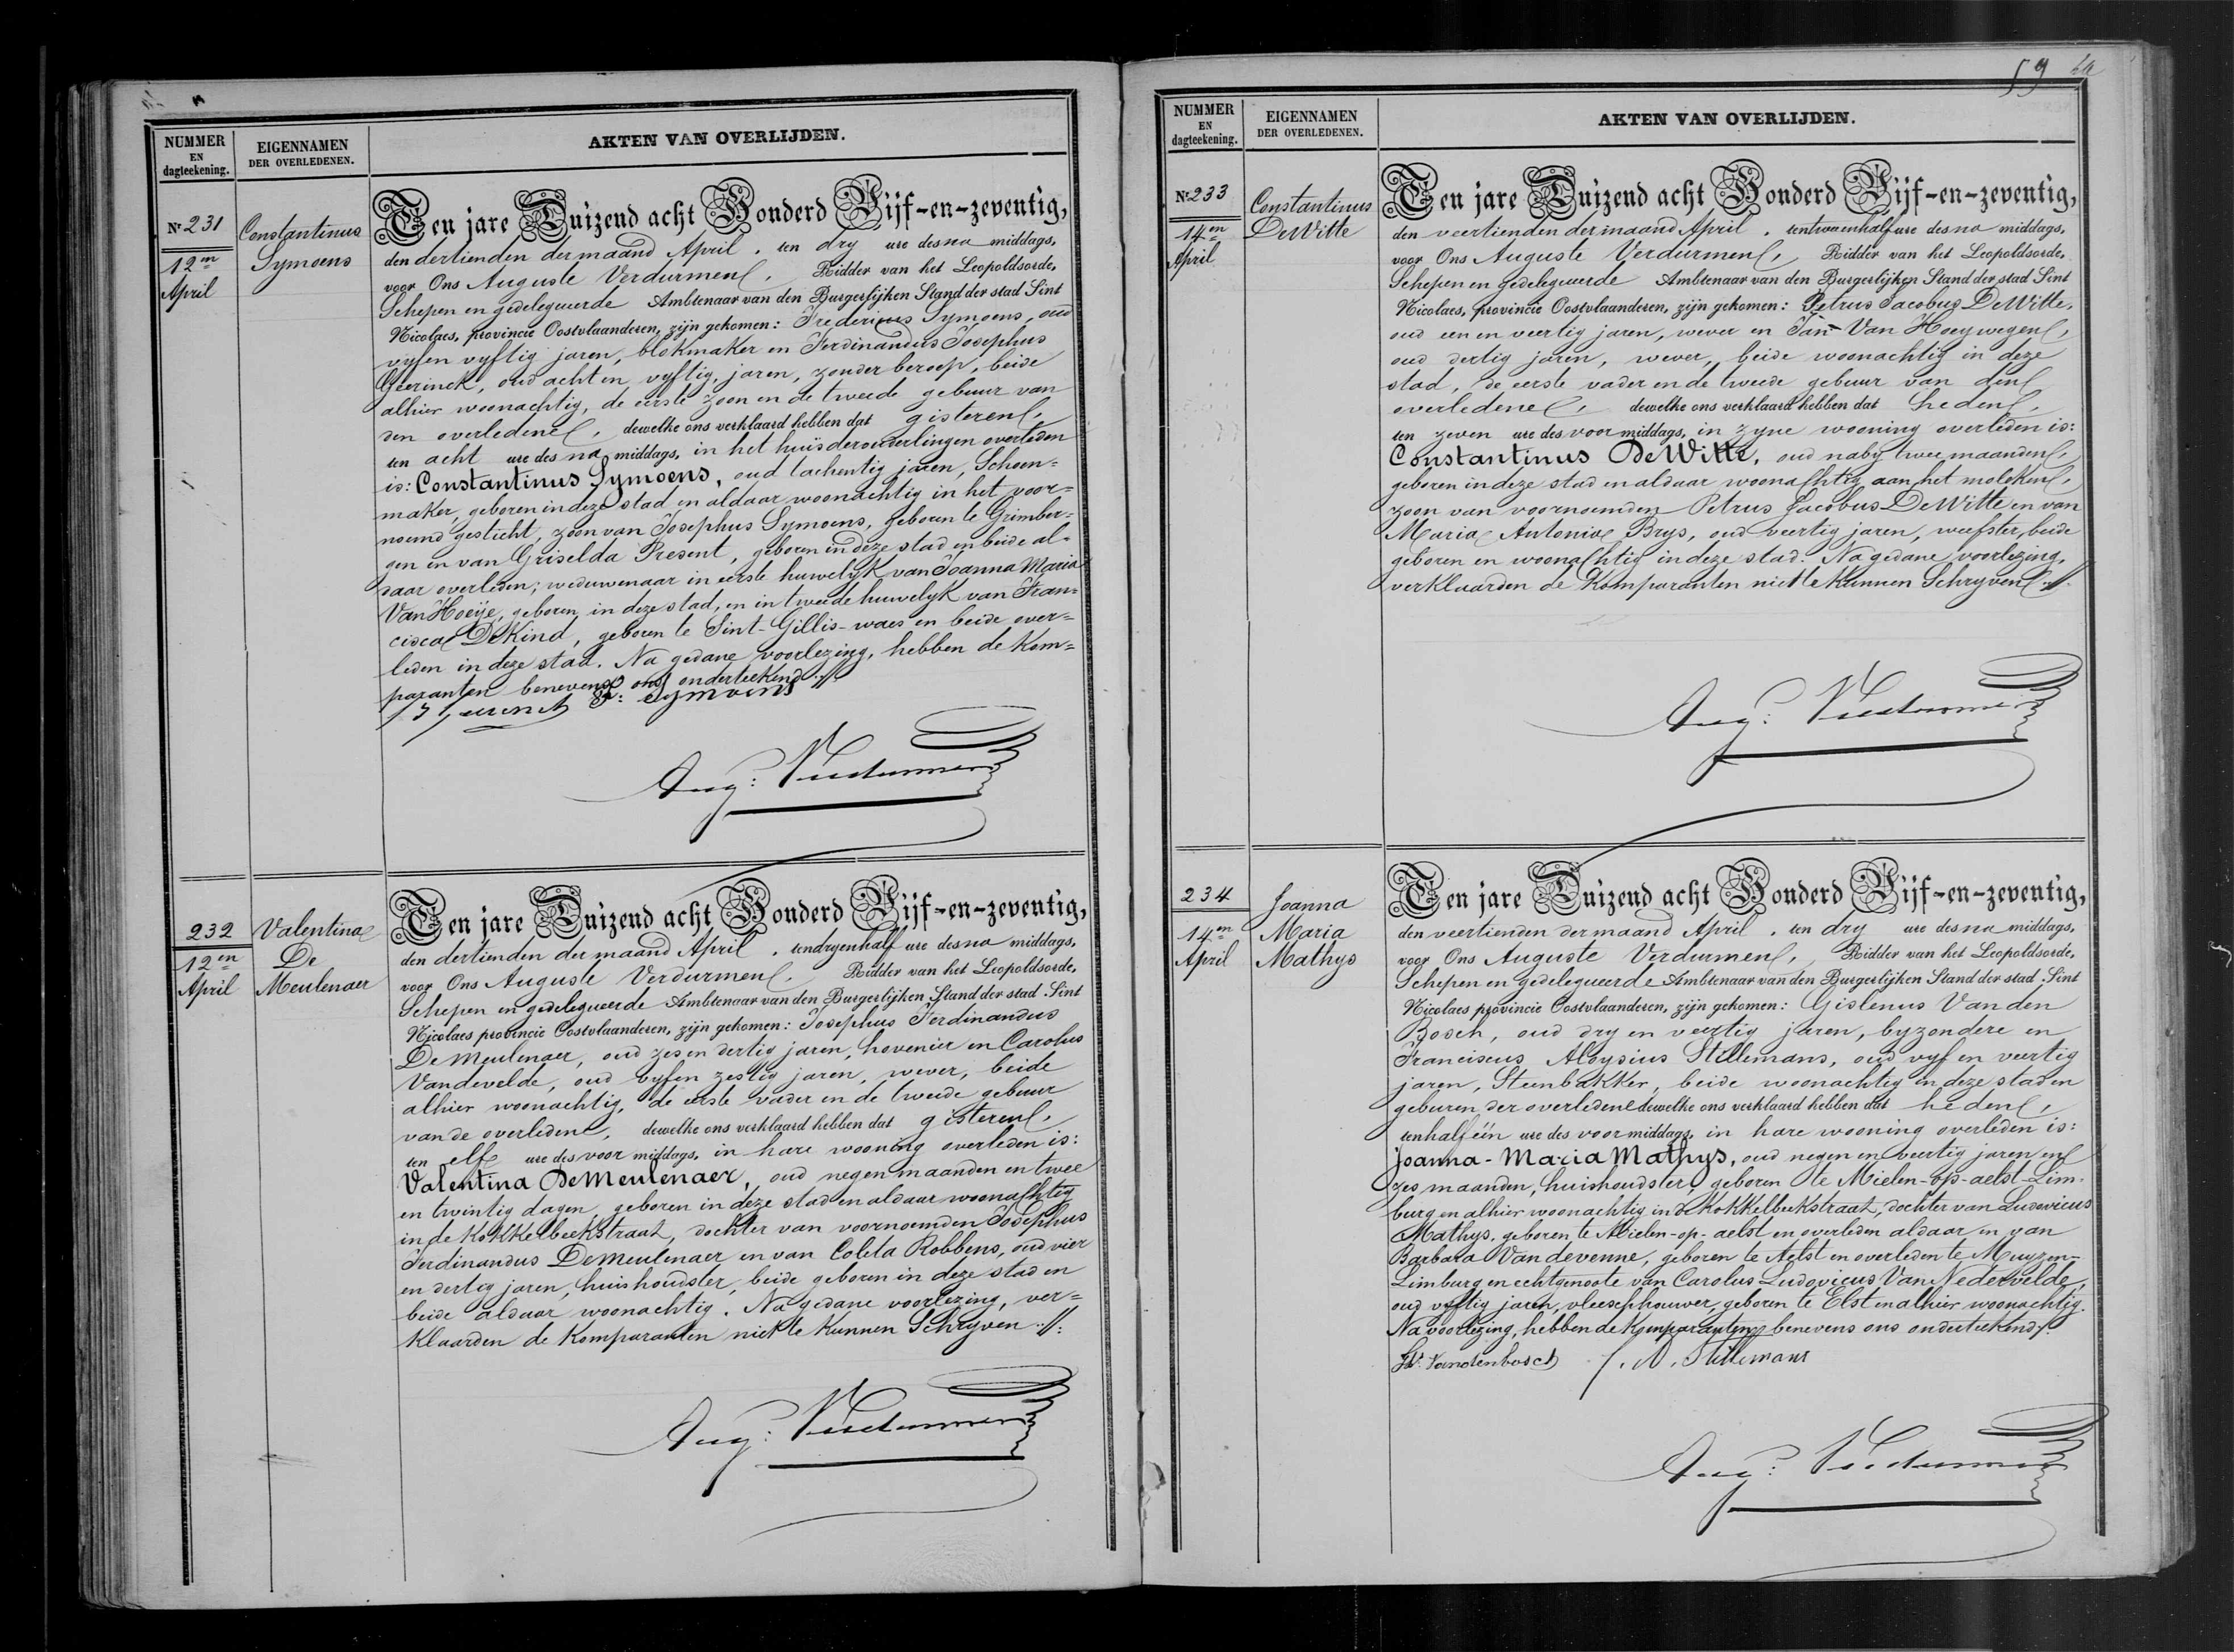 NUMMER EN dagteekening.
EIGENNAMEN DER OVERLEDENEN.
AKTEN VAN OVERLIJDEN.
Nr 231
12en
April
Constantinus
Symoens
Ten jare Duizend acht Honderd Vijf-en-zeventig,
den dertienden der maand April. ten dry ure des na middags,
voor Ons Auguste Verdurmen, Ridder van het Leopoldsorde,
Schepen en gedelegueerde Ambtenaar van den Burgerlijken Stand der stad Sint
Nicolaes, provincie Oostvlaanderen, zijn gekomen: Fredericus Symoens, oud
vyfen vyftig jaren, blokmaker en Ferdinandus Josephus
Geerinck, oud acht en vyftig jaren, zonder beroep, beide
alhier woonachtig, de eerste zoon en de tweede gebuur van
den overledene, dewelke ons verklaard hebben dat gisteren,
ten acht ure des na middags, in het huis der ouderlingen overleden
is: Constantinus Symoens, oud tachentig jaren, Schoen=
maker, geboren in deze stad en aldaar woonachtig in het voor=
noemd gesticht, zoon van Josephus Symoens, geboren te Grimber=
gen en van Griselda Present, geboren in deze stad en beide al=
daar overleden; weduwenaar in eerste huwelyk van Joanna Maria
Van Hoeije, geboren in deze stad, en in tweede huwelyk van Fran=
cisca DeKind, geboren te Sint-Gillis-waes en beide over=
leden in deze stad. Na gedane voorlezing, hebben de Kom=
paranten benevens ons onderteekend.//.
Fr: Symoens
Aug: Verdurmen
232
12en
April
Valentina
De
Meulenaer
Ten jare Duizend acht Honderd Vijf-en-zeventig,
den dertienden der maand April. ten dryenhalf ure des na middags,
voor Ons Auguste Verdurmen. Ridder van het Leopoldsorde,
Schepen en gedelegueerde Ambtenaar van den Burgerlijken Stand der stad Sint
Nicolaes provincie Oostvlaanderen, zijn gekomen: Josephus Ferdinandus
De Meulenaer, oud zes en dertig jaren, hovenier en Carolus
Vandevelde, oud vyfen zestig jaren, wever, beide
alhier woonachtig, de eerste vader en de tweede gebuur
van de overledene, dewelke ons verklaard hebben dat gisteren,
ten elf ure des voor middags, in hare wooning overleden is:
Valentina DeMeulenaer, oud negen maanden en twee
en twintig dagen, geboren in deze stad en aldaar woonachtig
in de Kokkelbeekstraat, dochter van voornoemden Josephus
Ferdinandus DeMeulenaer en van Coleta Robbens, oud vier
en dertig jaren, huishoudster, beide geboren in deze stad en
beide aldaar woonachtig. Na gedane voorlezing, ver=
klaarden de Komparanten niet te Kunnen Schryven.//:
Aug: Verdurmen
59
NUMMER EN dagteekening.
EIGENNAMEN DER OVERLEDENEN.
AKTEN VAN OVERLIJDEN.
Nr 233
14en
April
Constantinus
DeWitte
Ten jare Duizend acht Honderd Vijf-en-zeventig,
den veertienden der maand April. ten twaenhalf ure des na middags,
voor Ons Auguste Verdurmen, Ridder van het Leopoldsorde,
Schepen en gedelegueerde Ambtenaar van den Burgerlijken Stand der stad Sint
Nicolaes, provincie Oostvlaanderen, zijn gekomen: Petrus Jacobus DeWitte,
oud een en veertig jaren, wever en Jan Van Hoeywegen,
oud dertig jaren, wever, beide woonachtig in deze
stad, de eerste vader en de tweede gebuur van den
overledene, dewelke ons verklaard hebben dat heden,
ten zeven ure des voor middags, in zyne wooning overleden is:
Constantinus DeWitte, oud naby twee maanden,
geboren in deze stad en aldaar woonachtig aan het moleken,
zoon van voornoemden Petrus Jacobus DeWitte en van
Maria Antonia Brys, oud veertig jaren, weefster, beide
geboren en woonachtig in deze stad. Na gedane voorlezing,
verklaarden de Komparanten niet te Kunnen Schryven.//.
Aug: Verdurmen
234
14en
April
Joanna
Maria
Mathys
Ten jare Duizend acht Honderd Vijf-en-zeventig,
den veertienden der maand April. ten dry ure des na middags,
voor Ons Auguste Verdurmen, Ridder van het Leopoldsorde,
Schepen en gedelegueerde Ambtenaar van den Burgerlijken Stand der stad Sint
Nicolaes provincie Oostvlaanderen, zijn gekomen: Gislenus Vanden
Bosch, oud dry en veertig jaren, byzondere en
Franciscus Aloysius Stillemans, oud vyf en veertig
jaren, Steenbakker, beide woonachtig in deze stad en
geburen der overledene dewelke ons verklaard hebben dat heden,
ten half één ure des voor middags, in hare wooning overleden is:
Joanna-Maria Mathys, oud negen en veertig jaren en
zes maanden, huishoudster, geboren te Mielen-op-aelst-Lim=
burg en alhier woonachtig in de Kokkelbeekstraat, dochter van Ludovicus
Mathys, geboren te Mielen-op-aelst en overleden aldaar en van
Barbara Vandevenne, geboren te Aelst en overleden te Muyzen-
Limburg en echtgenoote van Carolus Ludovicus Van Nedervelde,
oud vyftig jaren, vleeschhouwer, geboren te Elst en alhier woonachtig.
Na voorlezing, hebben de Komparanten benevens ons onderteekend./.
Vandenbosch F. A. Stillemans
Aug: Verdurmen